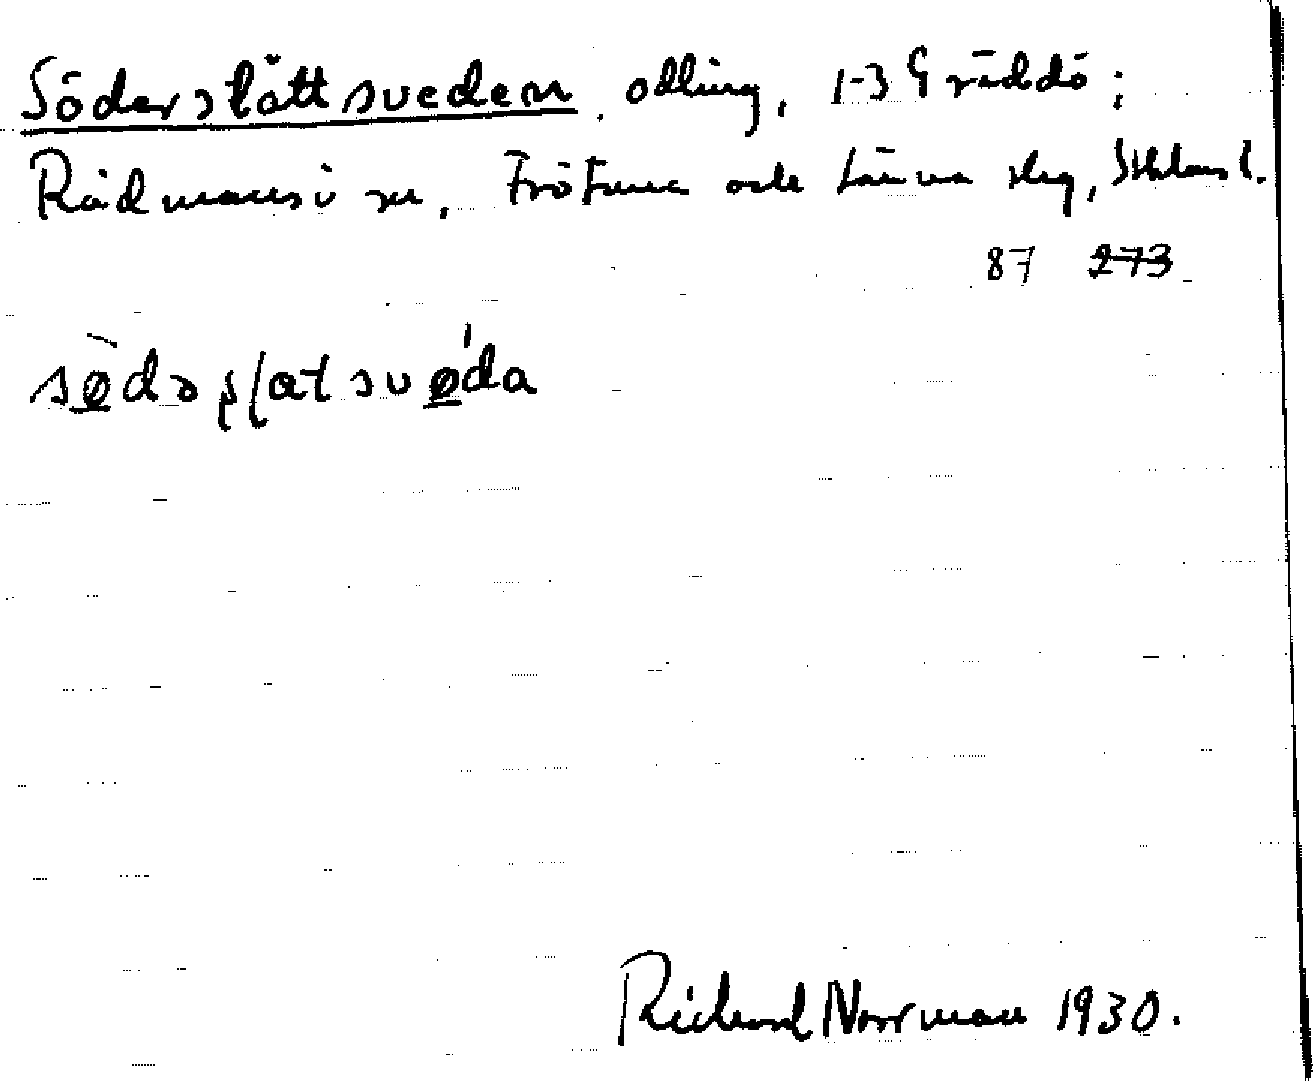 Söderslättsveden, odling, 1-3 Gräddö;
Rådmansö sn, Frötuna och Länna skg, Sthlms l.
87 273
södəṣlatsvęda
Richard Norrman 1930.